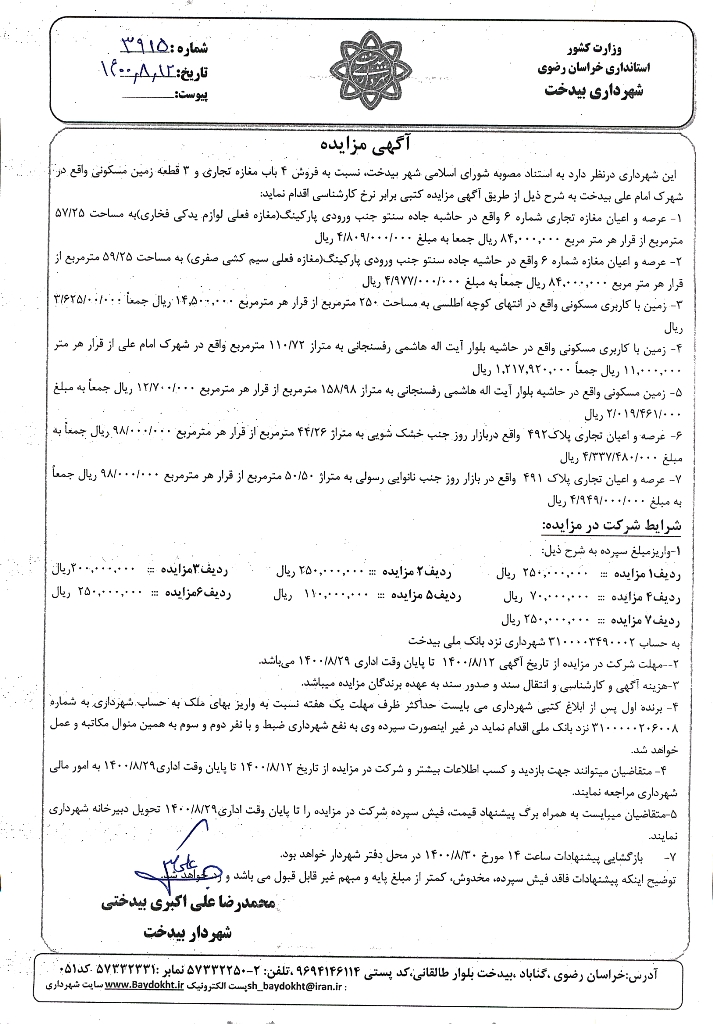 وزارت کشور
استانداری خراسان رضوی
شهرداری بیدخت
شماره: ۳۹۱۵
تاریخ: ۱۴۰۰,۸,۱۲
پیوست:
آگهی مزایده
این شهرداری درنظر دارد به استناد مصوبه شورای اسلامی شهر بیدخت، نسبت به فروش ۴ باب مغازه تجاری و ۳ قطعه زمین مسکونی واقع در
شهرک امام علی بیدخت به شرح ذیل از طریق آگهی مزایده کتبی برابر نرخ کارشناسی اقدام نماید:
۱- عرصه و اعیان مغازه تجاری شماره ۶ واقع در حاشیه جاده سنتو جنب ورودی پارکینگ(مغازه فعلی لوازم یدکی فخاری)به مساحت ۵۷/۲۵
مترمربع از قرار هر متر مربع ۸۴,۰۰۰,۰۰۰ ریال جمعا به مبلغ ۴/۸۰۹/۰۰۰/۰۰۰ ریال
۲- عرصه و اعیان مغازه شماره ۶ واقع در حاشیه جاده سنتو جنب ورودی پارکینگ(مغازه فعلی سیم کشی صفری) به مساحت ۵۹/۲۵ مترمربع از
قرار هر متر مربع ۸۴,۰۰۰,۰۰۰ ریال جمعاً به مبلغ ۴/۹۷۷/۰۰۰/۰۰۰ ریال
۳- زمین با کاربری مسکونی واقع در انتهای کوچه اطلسی به مساحت ۲۵۰ مترمربع از قرار هر مترمربع ۱۴,۵۰۰,۰۰۰ ریال جمعاً ۳/۶۲۵/۰۰/۰۰۰
ریال
۴- زمین با کاربری مسکونی واقع در حاشیه بلوار آیت اله هاشمی رفسنجانی به متراژ ۱۱۰/۷۲ مترمربع واقع در شهرک امام علی از قرار هر متر
۱۱,۰۰۰,۰۰۰ ریال جمعاً ۱,۲۱۷,۹۲۰,۰۰۰ ریال
۵- زمین مسکونی واقع در حاشیه بلوار آیت اله هاشمی رفسنجانی به متراژ ۱۵۸/۹۸ مترمربع از قرار هر مترمربع ۱۲/۷۰۰/۰۰۰ ریال جمعاً به مبلغ
۲/۰۱۹/۴۶۱/۰۰۰ ریال
۶- عرصه و اعیان تجاری پلاک۴۹۲ واقع دربازار روز جنب خشک شویی به متراژ ۴۴/۲۶ مترمربع از قرار هر مترمربع ۹۸/۰۰۰/۰۰۰ ریال جمعاً به
مبلغ ۴/۳۳۷/۴۸۰/۰۰۰ ریال
۷- عرصه و اعیان تجاری پلاک ۴۹۱ واقع در بازار روز جنب نانوایی رسولی به متراژ ۵۰/۵۰ مترمربع از قرار هر مترمربع ۹۸/۰۰۰/۰۰۰ ریال جمعاً
به مبلغ ۴/۹۴۹/۰۰۰/۰۰۰ ریال
شرایط شرکت در مزایده:
۱-واریزمبلغ سپرده به شرح ذیل:
ردیف۱ مزایده ::: ۲۵۰,۰۰۰,۰۰۰ ریال ردیف۲ مزایده ::: ۲۵۰,۰۰۰,۰۰۰ ریال ردیف۳مزایده ::: ۲۰۰,۰۰۰,۰۰۰ریال
ردیف۴ مزایده ::: ۷۰,۰۰۰,۰۰۰ ریال ردیف۵ مزایده ::: ۱۱۰,۰۰۰,۰۰۰ ریال ردیف۶مزایده ::: ۲۵۰,۰۰۰,۰۰۰ ریال
ردیف۷ مزایده ::: ۲۵۰,۰۰۰,۰۰۰ ریال
به حساب ۳۱۰۰۰۰۳۴۹۰۰۰۲ شهرداری نزد بانک ملی بیدخت
۲--مهلت شرکت در مزایده از تاریخ آگهی ۱۴۰۰/۸/۱۲ تا پایان وقت اداری ۱۴۰۰/۸/۲۹ می‌باشد.
۳-هزینه آگهی و کارشناسی و انتقال سند و صدور سند به عهده برندگان مزایده میباشد.
۴- برنده اول پس از ابلاغ کتبی شهرداری می بایست حداکثر ظرف مهلت یک هفته نسبت به واریز بهای ملک به حساب شهرداری به شماره
۳۱۰۰۰۰۰۲۰۶۰۰۸ نزد بانک ملی اقدام نماید در غیر اینصورت سپرده وی به نفع شهرداری ضبط و با نفر دوم و سوم به همین منوال مکاتبه و عمل
خواهد شد.
۴- متقاضیان میتوانند جهت بازدید و کسب اطلاعات بیشتر و شرکت در مزایده از تاریخ ۱۴۰۰/۸/۱۲ تا پایان وقت اداری۱۴۰۰/۸/۲۹ به امور مالی
شهرداری مراجعه نمایند.
۵-متقاضیان میبایست به همراه برگ پیشنهاد قیمت، فیش سپرده شرکت در مزایده را تا پایان وقت اداری۱۴۰۰/۸/۲۹ تحویل دبیرخانه شهرداری
نمایند.
۷- بازگشایی پیشنهادات ساعت ۱۴ مورخ ۱۴۰۰/۸/۳۰ در محل دفتر شهردار خواهد بود.
توضیح اینکه پیشنهادات فاقد فیش سپرده، مخدوش، کمتر از مبلغ پایه و مبهم غیر قابل قبول می باشد و رد خواهد شد.
محمدرضا علی اکبری بیدختی
شهردار بیدخت
آدرس:خراسان رضوی ،گناباد ،بیدخت بلوار طالقانی،کد پستی ۹۶۹۴۱۴۶۱۱۴ ،تلفن: ۲-۵۷۳۳۲۲۵۰ نمابر :۵۷۳۳۲۳۳۱ کد۰۵۱
سایت شهرداری www.Baydokht.ir پست الکترونیک sh_baydokht@iran.ir :